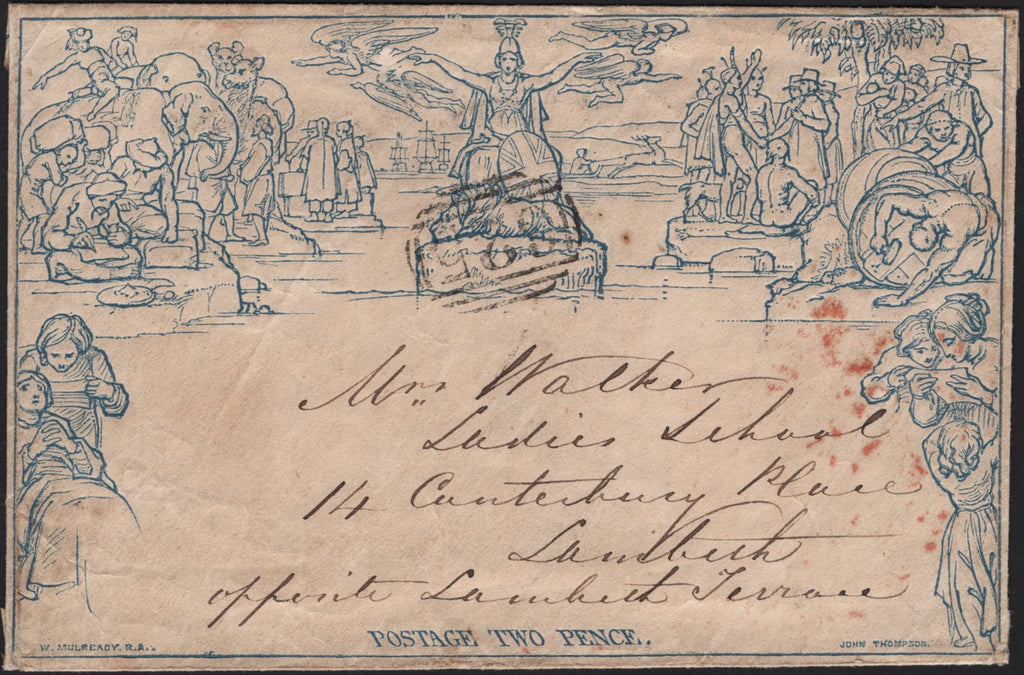 Mrs Walker
Ladies School
14 Canterbury Place
Lambeth
opposite Lambeth Terrace
POSTAGE TWO PENCE.
W. MULREADY. R.A.
JOHN THOMPSON.